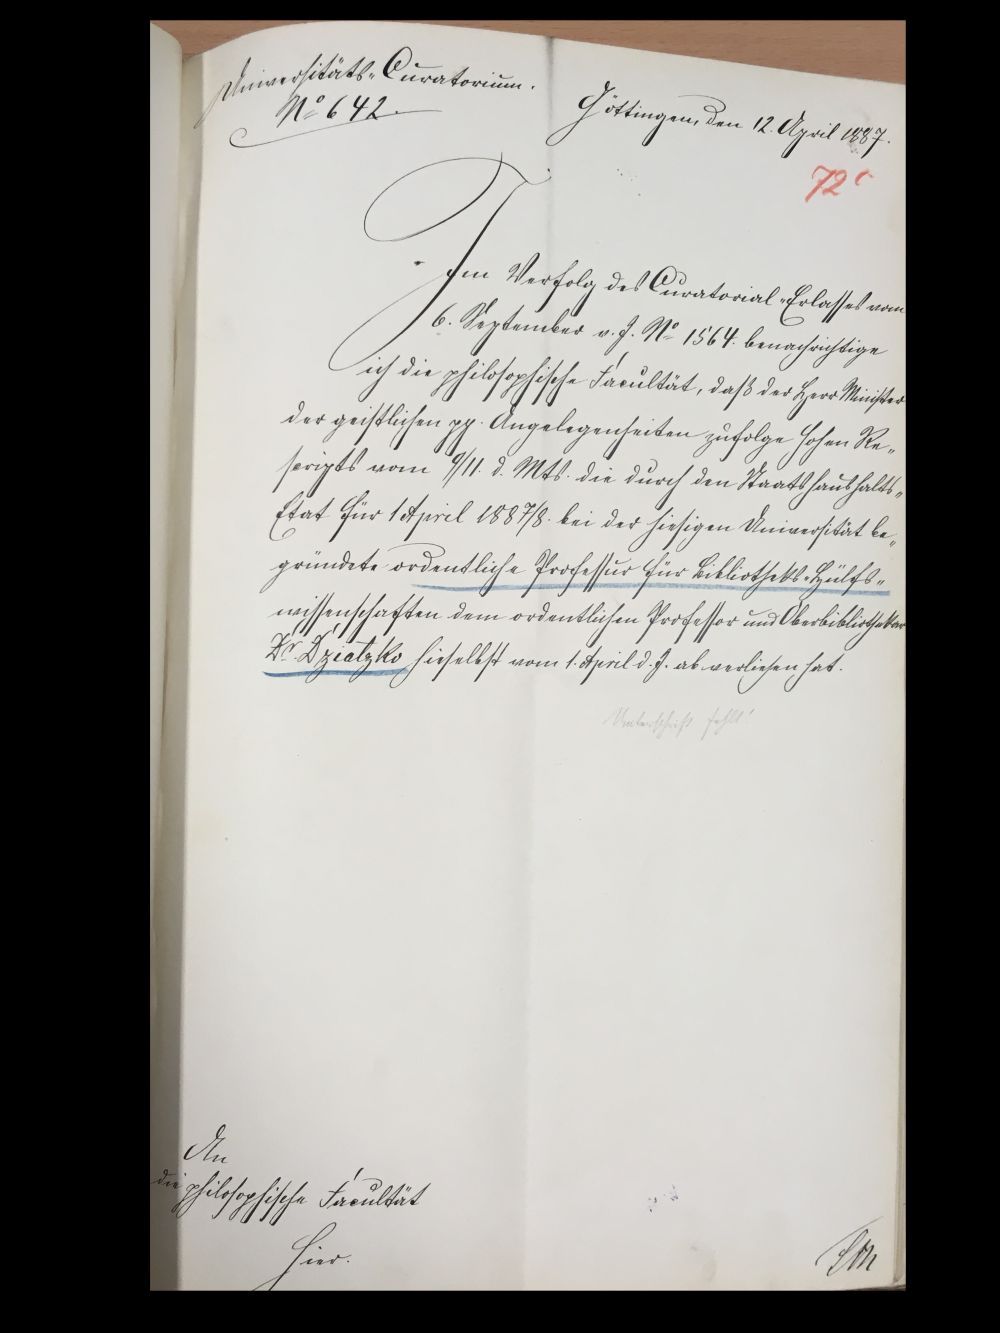 Universitäts-Curatorium.
No 642.
Göttingen, den 12. April 1887.
72c
Im Verfolg des Curatorial-Erlasses vom
6. September v. J. No 1564. benachrichtige
ich die philosophische Facultät, daß der Herr Minister
der geistlichen pp. Angelegenheiten zufolge hohen Re-
scripts vom 9/11. d. Mts. die durch den Staatshaushalts-
Etat für 1 April 1887/8. bei der hiesigen Universität be-
gründete ordentliche Professur für Bibliotheks-Hülfs-
wissenschaften dem ordentlichen Professor und Oberbibliothekar
Dr. Dziatzko hieselbst vom 1. April d. J. ab verliehen hat.
Unterschrift fehlt!
An
die philosophische Facultät
Hier.